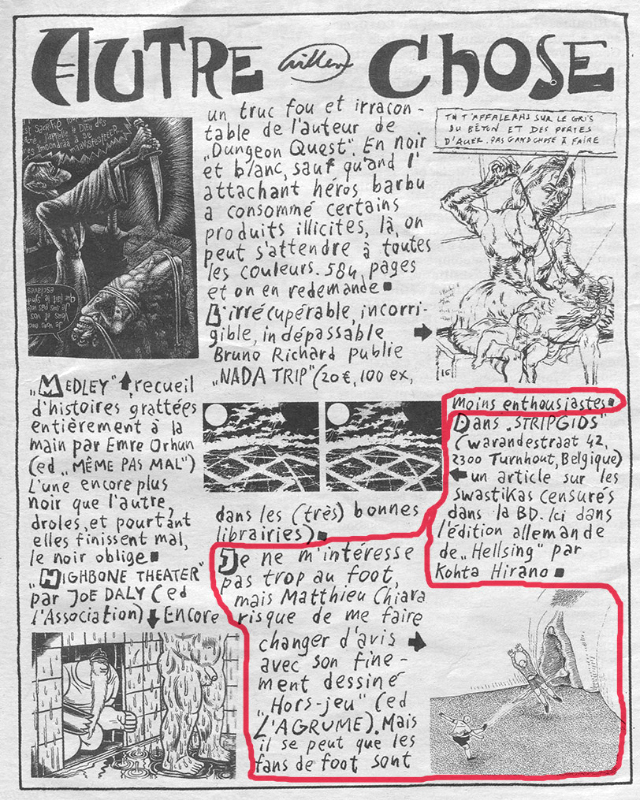 AUTRE Willem CHOSE
„MEDLEY" recueil
d'histoires grattées
entièrement à la
main par Emre Orhun
(ed „MÊME PAS MAL")
L'une encore plus
noir que l'autre,
droles, et pourtant
elles finissent mal,
le noir oblige ■
„HIGHBONE THEATER"
par JOE DALY (ed
l'Association) Encore
un truc fou et irracon-
table de l'auteur de
„Dungeon Quest". En noir
et blanc, sauf quand l'
attachant héros barbu
a consommé certains
produits illicites, là, on
peut s'attendre à toutes
les couleurs. 584 pages
et on en redemande ■
L'irrécupérable, incorri-
gible, indépassable
Bruno Richard publie
„NADA TRIP" (20€, 100 ex,
dans les (très) bonnes
librairies) ■
Je ne m'intéresse
pas trop au foot,
mais Matthieu Chiara
risque de me faire
changer d'avis
avec son fine-
ment dessiné
„Hors-jeu" (ed
L'AGRUME). Mais
il se peut que les
fans de foot sont
TU T'AFFALERAS SUR LE GRIS
DU BÉTON ET DES PORTES
D'AUEL. PAS GANDCHOSE À FAIRE
moins enthousiastes ■
Dans „STRIPGIDS"
(warandestraat 42,
2300 Turnhout, Belgique)
un article sur les
swastikas censurés
dans la BD. Ici dans
l'édition allemande
de „Hellsing" par
Kohta Hirano ■